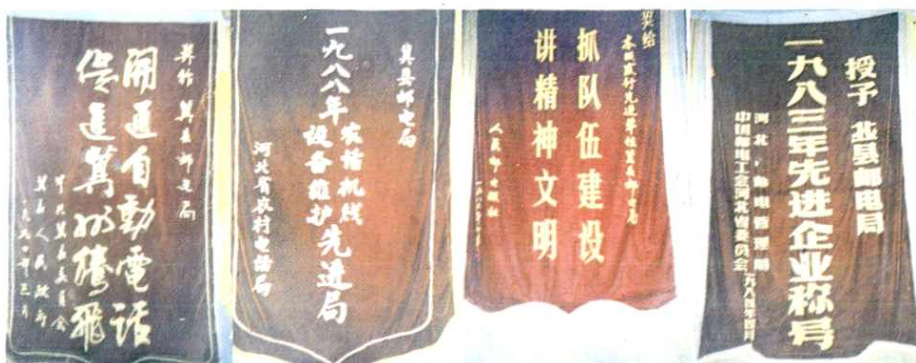 奖给 冀县邮电局
開通自動電话
促進冀州騰飛
中共冀县县委会
冀县人民政府
冀县邮电局
一九八八年农话机线
设备维护先进局
河北省农村电话局
奖给
抓队伍建设
讲精神文明
人民邮电报社
授予 冀县邮电局
一九八三年先进企业称号
河北省邮电管理局
中国邮电工会河北省委员会
一九八四年四月